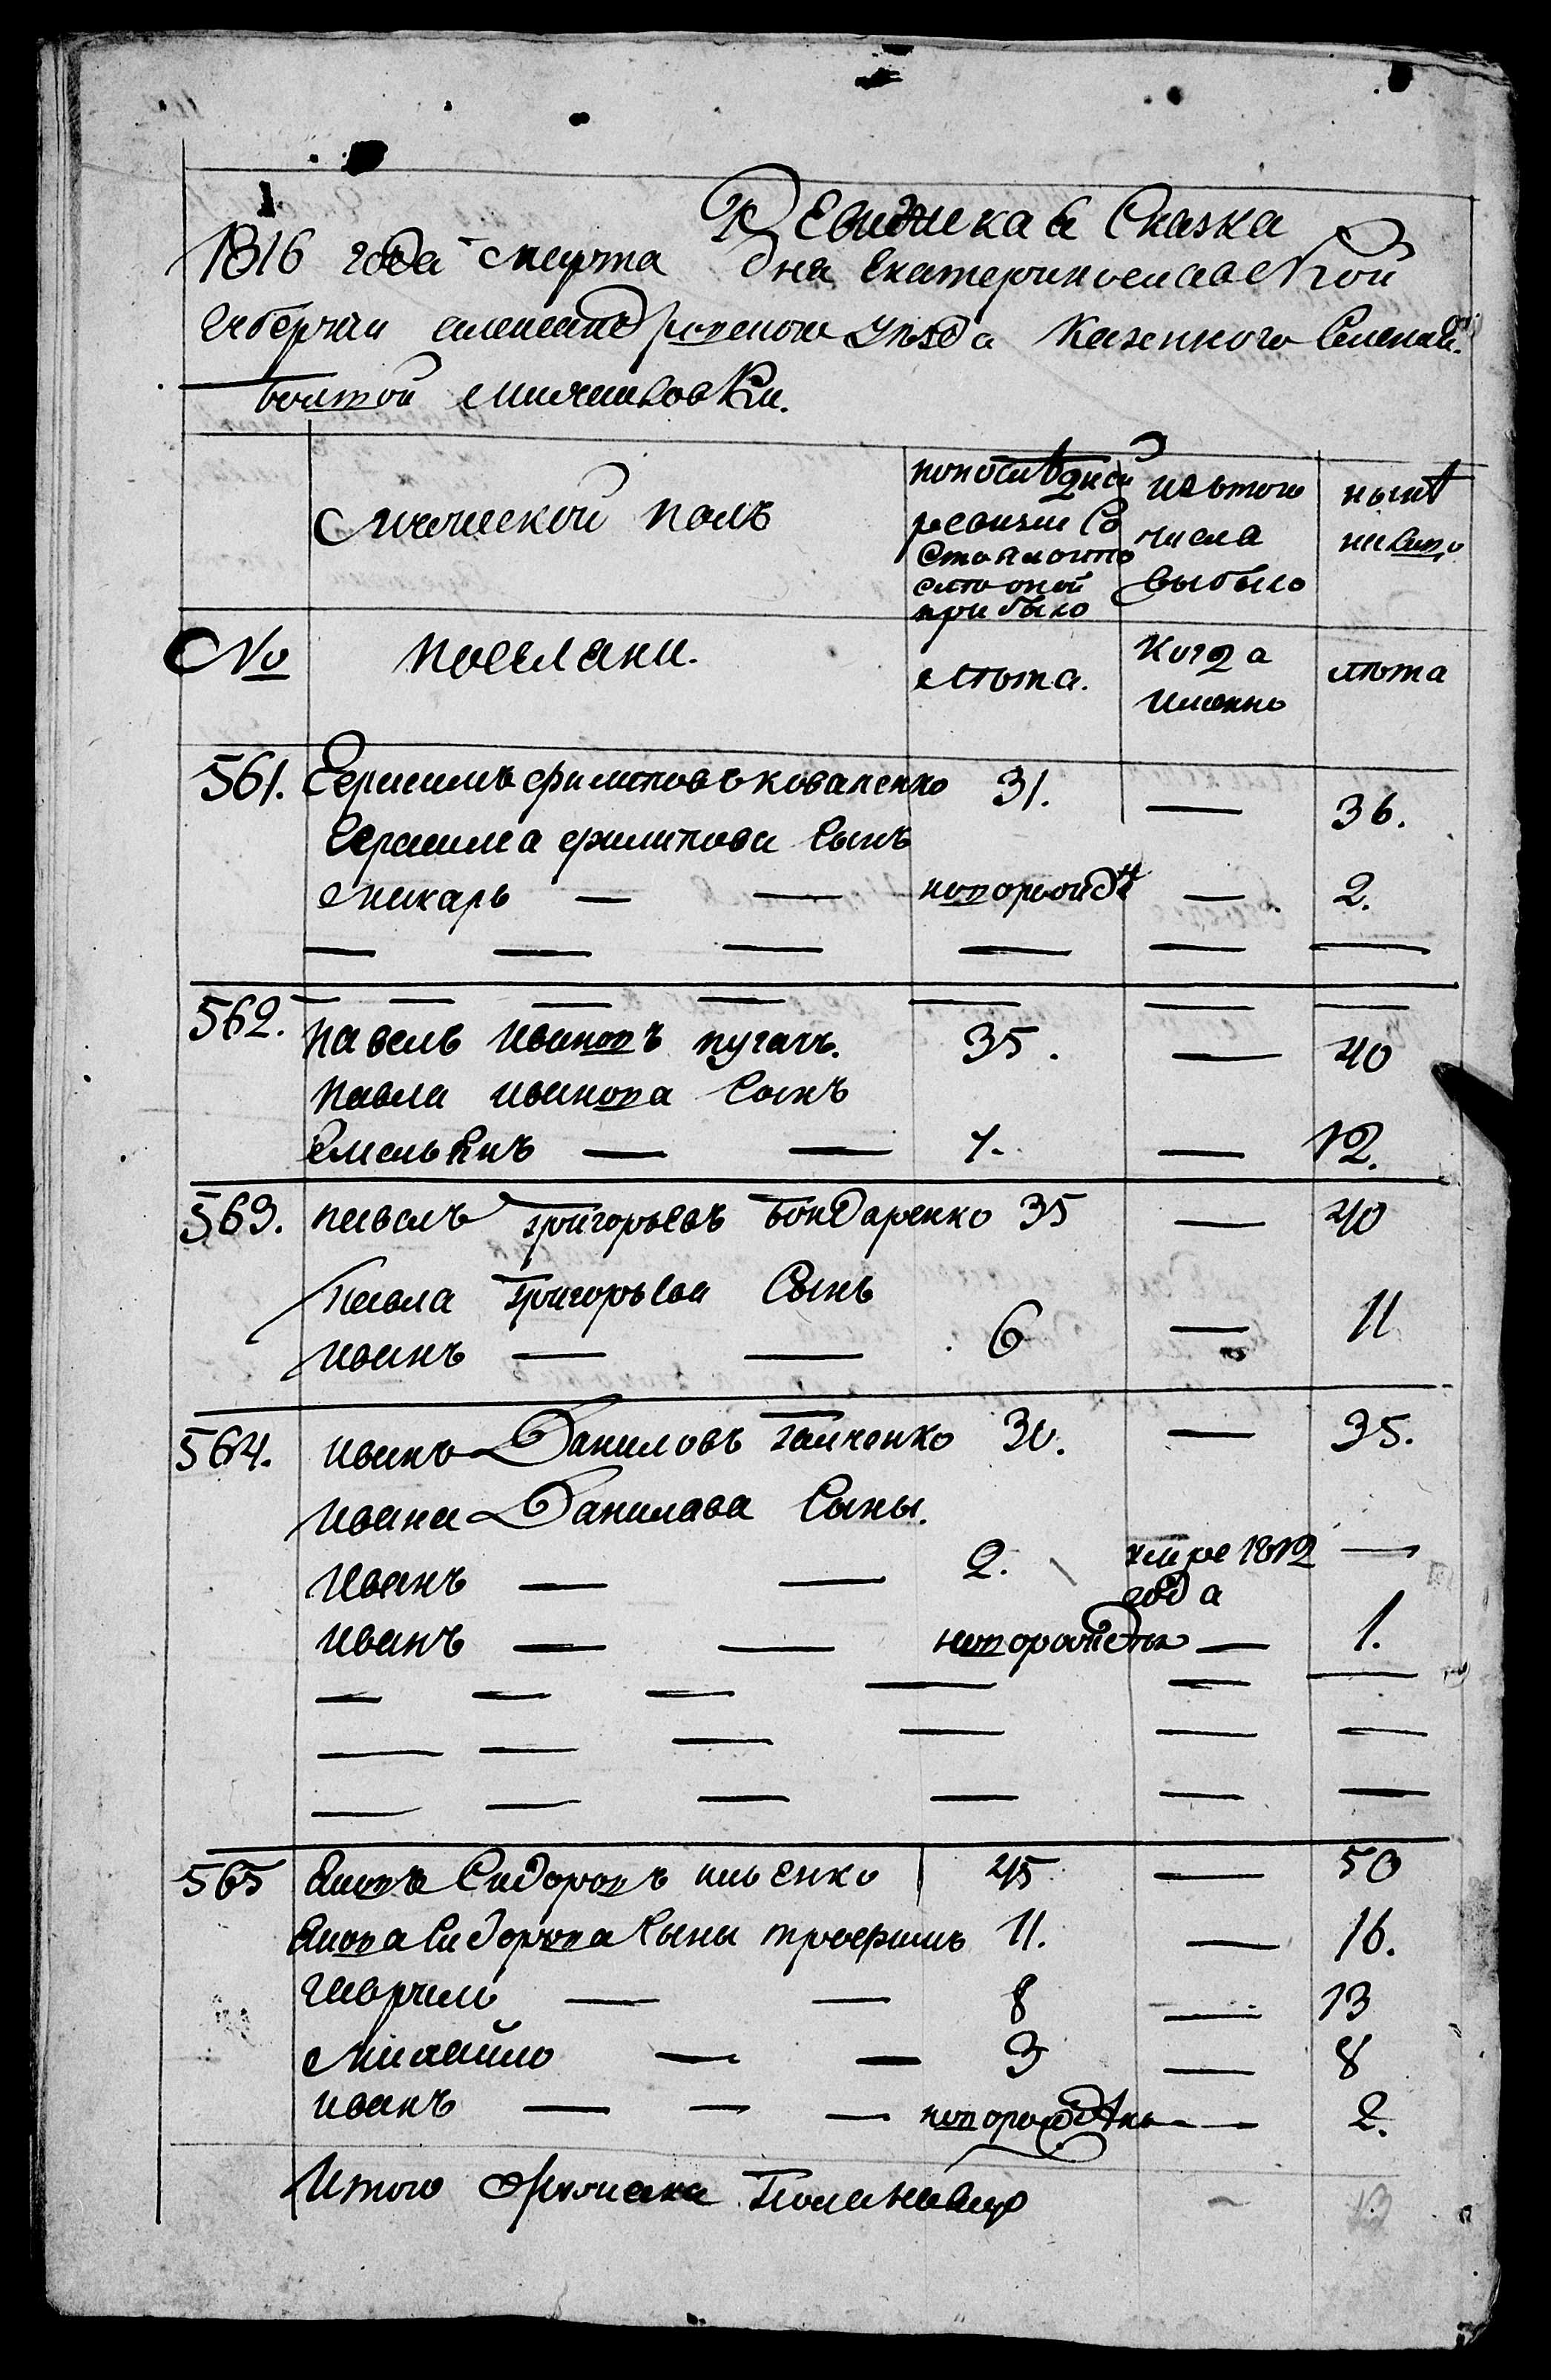 Ревижска я Сказка
1816 года марта дня Екатеринославской
губернии александровского уезда казенного Селения
большой михайловки.
Мужеской полъ
попоследней ревизии состояло и после оной прибыло
изтого числа выбыло
ныне налицо
№ поселяни. лета. когда именно лета
561. Герасимъ филиповъ коваленко 31. — 36.
Герасима филипова сынъ
макаръ — — новорожде — 2.
562. павелъ ивановъ пугачъ. 35. — 40
павла иванова сынъ
Емельянъ — — 7. — 12.
563. павелъ григорьевъ бондаренко 35 — 40
павла григорьева Сынъ
иванъ — — 6 — 11
564. иванъ Даниловъ Галченко 30. — 35.
ивана Данилава Сыны.
иванъ — — 2. умре 1812 года —
иванъ — — новорожденъ — 1.
565 Сидоровъ ильенко 45 — 50
Сидорова Сыны трофимъ 11. — 16.
гаврило — — 8 — 13
михайло — — 3 — 8
иванъ — — — новорожденъ — 2.
Итого мужеска пола налицо — 13